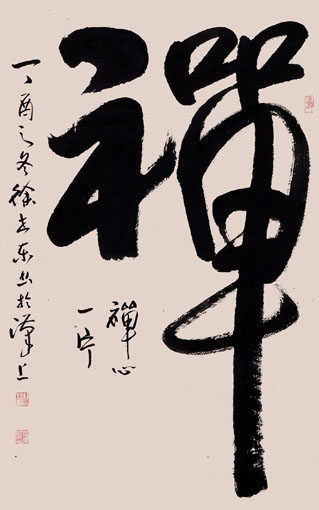 禪
禪心
一片
丁酉之冬徐志东书於漢上